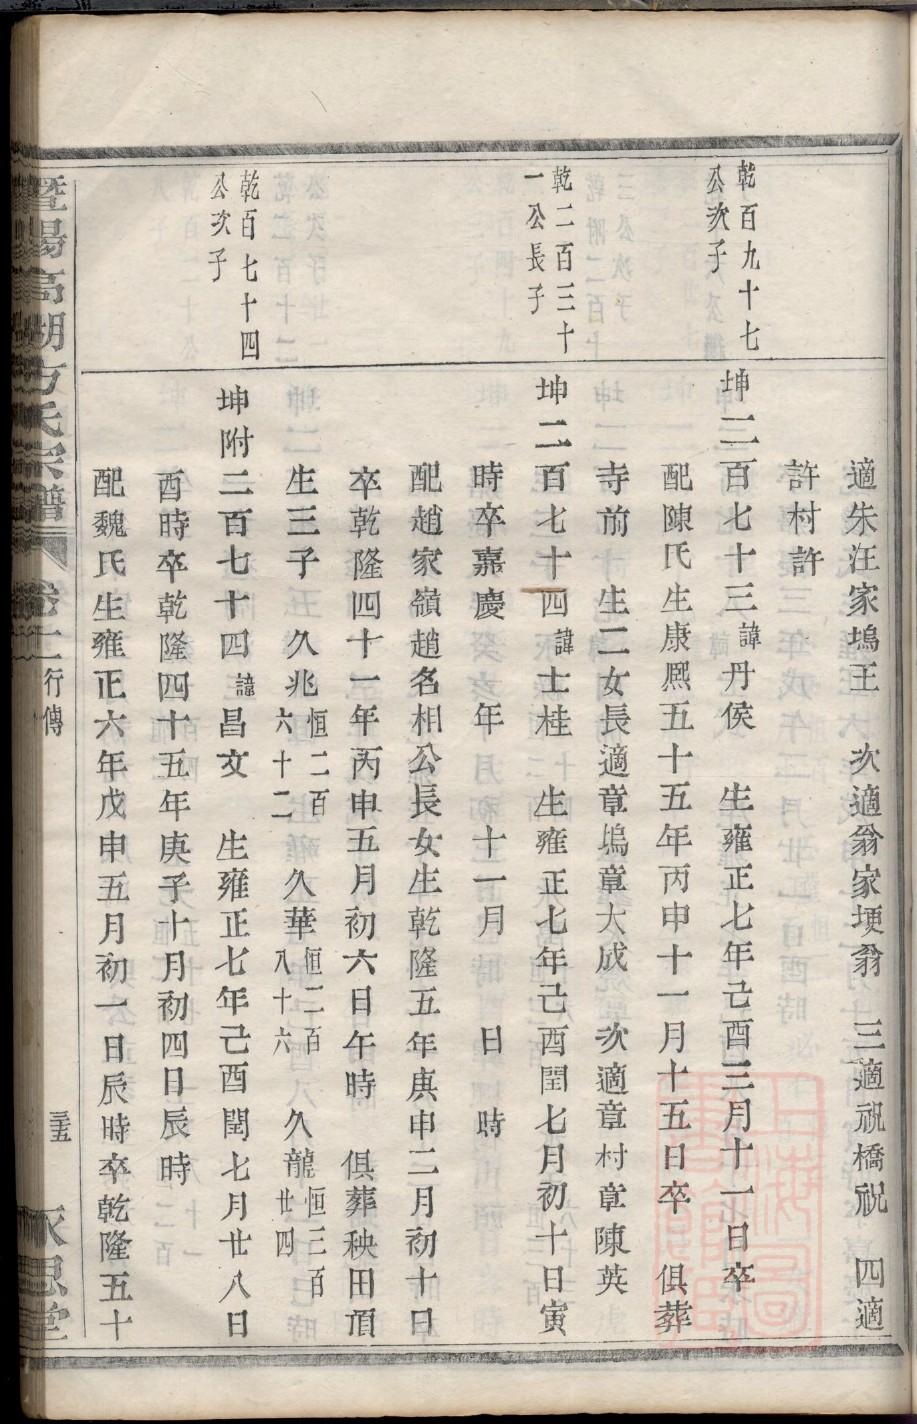 適朱汪家塢王　次適翁家埂翁　三適祝橋祝　四適
許村許
乾百九十七
公次子
坤二百七十三諱丹侯　生雍正七年己酉三月十一日卒
配陳氏生康熈五十五年丙申十一月十五日卒　俱葬
寺前　生二女長適章塢章大成次適章村章陳英
乾二百三十
一公長子
坤二百七十四諱士桂　生雍正七年己酉閏七月初十日寅
時卒嘉慶　　年　十一月　　日　時
配趙家嶺趙名相公長女生乾隆五年庚申二月初十日
卒乾隆四十一年丙申五月初六日午時　俱葬秧田頂
生三子　久兆恒二百六十二　久華恒二百八十六　久龍恒三百廿四
乾百七十四
公次子
坤附二百七十四諱昌文　生雍正七年己酉閏七月廿八日
酉時卒乾隆四十五年庚子十月初四日辰時
配魏氏生雍正六年戊申五月初一日辰時卒乾隆五十
暨陽高湖方氏宗譜　卷十二　行傳　三五　永思堂